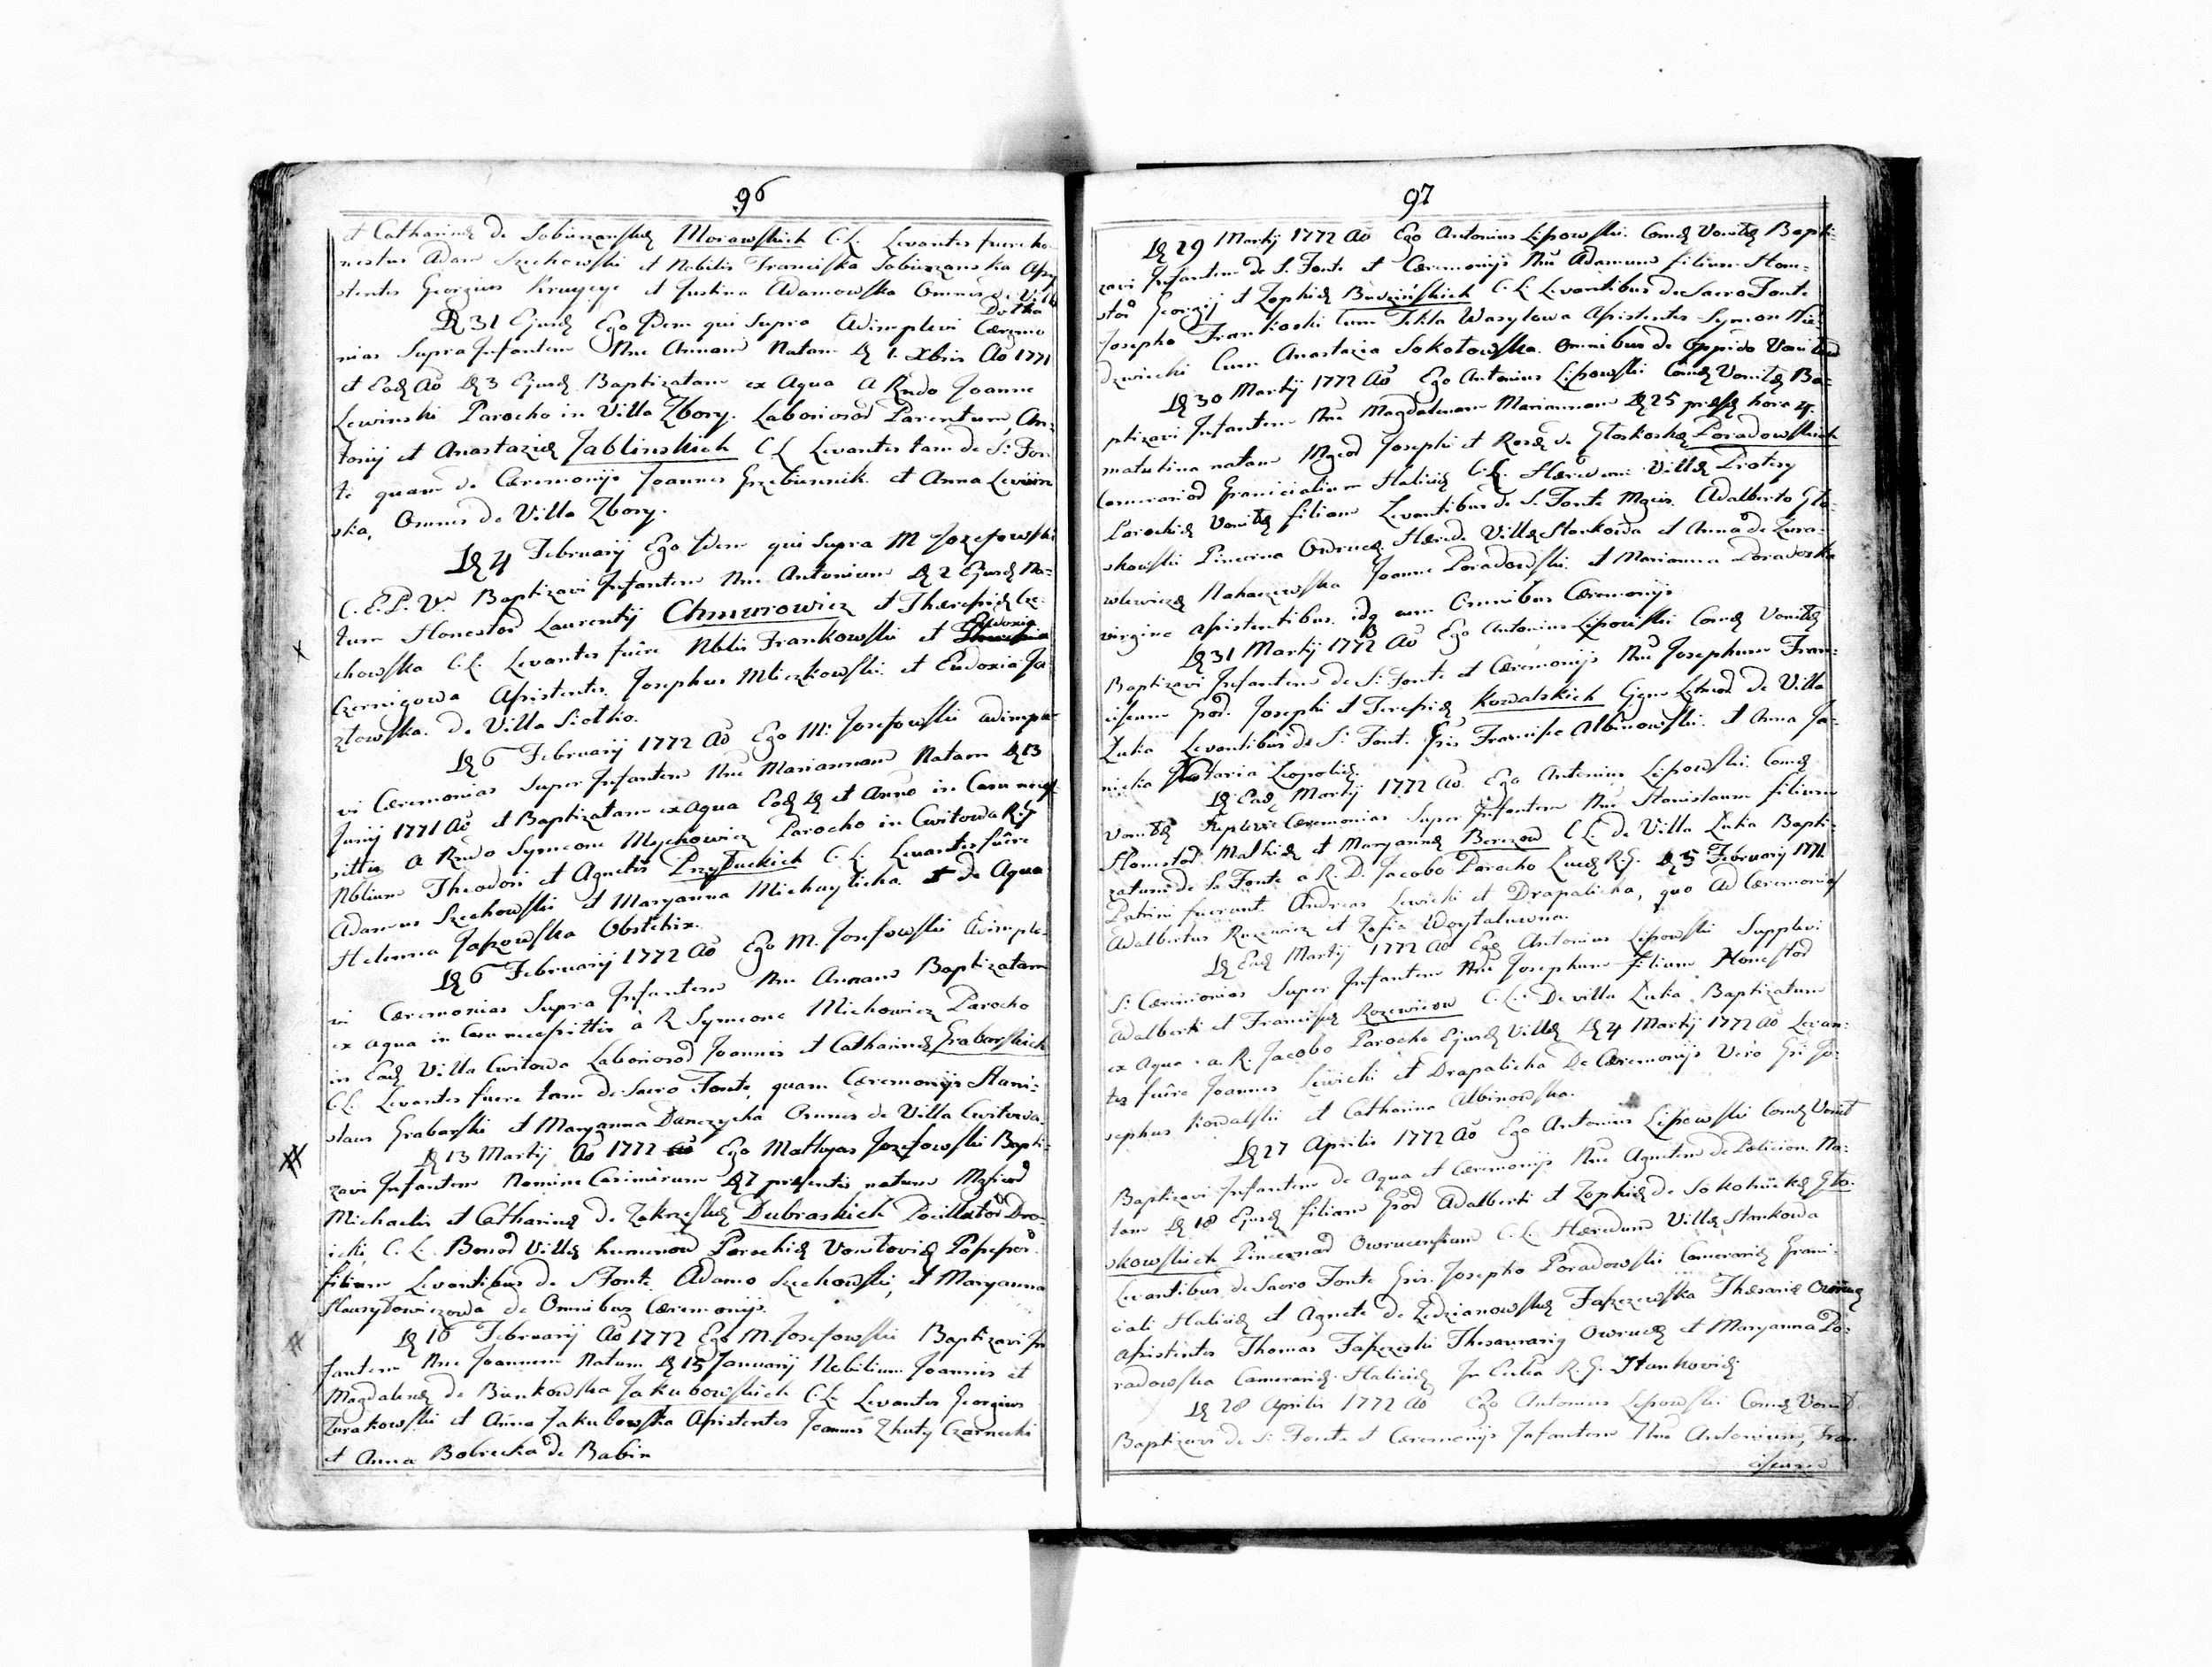 96
et Catharinæ de Sobiszanskæ Morawskich C.L. Levantes fuere ho
nestus Adam Szechowski et Nobilis Franciska Sobiszanska Assi
stentes Georgius et Justina Adamowska Omnes de Villa
Dołha
Die 31 Ejusd Ego Idem qui Supra Adimplevi Cæremo
nias Supra Infantem Nne Annam Natam die 1. Xbris Ao 1771
et Eod Ao die 3 Ejusd Baptizatam ex Aqua A Rndo Joanne
Lewinski Parocho in Villa Zbory. Laboriosor Parentum, An=
tonij et Anastaziæ Jablinskich C L Levantes tam de S: Fon
te quam de Cæremonijs Joannes Grzebiennik et Anna Lewin
ska, Omnes de Villa Zbory.
Die 4 February Ego Idem qui Supra M Jozefowski
C.E.P.V. Baptizavi Infantem Nne Antonium die 2 Ejusd Na=
tum Honestor Laurentij Chmurowicz et Theresiæ Cze=
chowska C.L. Levantes fuêre Nblis Frankowski et
Czernigowa Assistentes Josephus Mleczkowski et Eudoxia Ja
złowska. de Villa Siołko.
Die 6 February 1772 Ao Ego M: Josefowski adimple=
vi Cæremonias Super Infantem Nne Mariannam Natam die 13
Junij 1771 Ao et Baptizatam ex Aqua Eod die et Anno in Casu neces
sittis A Rndo Symeone Mychowicz Parocho in Cwitowa R.G
Nblium Theodori et Agnetis Przyłuckich C.L. Levantes fuêre
Adamus Szechowski et Maryanna Michaylicha. et de Aqua
Helenna Jaxowska Obstetrix.
Die 6 February 1772 Ao Ego M. Josefowski Adimple=
vi Cæremonias Supra Infantem Nne Annam Baptizatam
ex Aqua in Casu necessittis à R Symeone Michowicz Parocho
in Ead Villa Cwitowa Laboriosor Joannis et Catharinæ Grabarskich
C.L. Levantes fuere tam de Sacro Fonte, quam Cæremonijs Stani=
slaus Grabarski et Maryanna Danczycha Omnes de Villa Cwitowa.
Die 13 Martij Ao 1772 Ego Mathyas Jozefowski Bapti=
zavi Infantem Nomine Casimirum die 7 præsentis natum Mgficor
Michaelis et Catharinæ de Zakrzeskæ Dubraskich Pocillator Dro=
icki, C.L. Bonor Villæ humenow Parochiæ Vonilovię Possessor
filium Levantibus de S Fonte Adamo Szechowski, et Maryanna
Hawryłowiczowa de Omnibus Cæremonijs.
Die 16 February Ao 1772 Ego M. Josefowski Baptizavi In
fantem Nne Joannem Natum die 15 January Nobilium Joannis et
Magdalenæ de Bienkowska Jakubowskich C.L. Levantes Georgius
Zurakowski et Anna Jakubowska Assistentes Joannes Zhuty Czarnecki
et Anna Bobrecka de Babin
97
Die 29 Martij 1772 Ao Ego Antonius Lipowski Comd Vonilæ Bapti=
zavi Infantem de S. Fonte et Cæremonijs Nne Adamum filium Hone=
stor Georgij et Zophiæ Budzińskich C.L Levantibus de Sacro Fonte
Josepho Frankoski Cum Tekla Wasylowa Assistentes Symon Nie=
dzwiecki Cum Anastazia Sokołowska. Omnibus de Oppido Vonilow
Die 30 Martij 1772 Ao Ego Antonius Lipowski Comd Vonilæ Ba=
ptizavi Infantem Nne Magdalenam Mariannam die 25 præsæ hora 4.
matutina natam Mgcor Josephi et Rosæ de Głoskoskæ Poradowskich
Camerarior Granicialium Haliciæ C.L. Hæredum Villæ Protesy
Parochiæ Vonilæ filiam Levantibus de S. Fonte Mgcis. Adalberto Gło=
skowski Pincerna Owruceæ. Hærede Villæ Stankowa et Anna de Zura=
wlewiczæ Nahaczewska Joanne Poradowski et Marianna Poradoska
virgine assistentibus. idq cum Omnibus Cæremonijs
Die 31 Martij 1772 Ao Ego Antonius Lipowski Comd Vonilæ
Baptizavi Infantem de S: Fonte et Cæremonijs Nne Josephum Fran=
ciscum Gsor. Josephi et Teresiæ Kowalskich Ggnr Letmor de Villa
Łuka Levantibus de S: Font. Gsis Francisco Albinowski et Anna Ja=
nicka Notaria Leopoliæ.
Die Ead Martij 1772 Ao Ego Antonius Lipowski Comd
Vonilæ Supplevi Cæremonias Super Infantem Nne Stanislaum filium
Honestor Mathiæ et Maryannæ Berezow C.L. de Villa Łuka Bapti=
zatum de S. Fonte a R.D. Jacobo Parocho Lucæ R.G. die 5 February 1771
Patrini fuerunt. Andreas Lewicki et Drapalicha, quo Ad Cæremonias
Adalbertus Ruzewicz et Zofia Woytalowna.
Die Ead Martij 1772 Ao Ego Antonius Lipowski Supplevi
S: Cæremonias Super Infantem Nne Josephum filium Honestor
Adalberti et Franciscæ Rozewiczow C.L. De villa Łuka Baptizatum
ex Aqua a R. Jacobo Parocho Ejusd Villæ die 4 Martij 1772 Ao Levan=
tes fuêre Joannes Lewicki et Drapalicha De Cæremonijs Vero Gsi Jo=
sephus Kowalski et Catharina Albinowska.
Die 27 Aprilis 1772 Ao Ego Antonius Lipowski Comd Vonil
Baptizavi Infantem de Aqua et Cæremonijs Nne Agnetem de Policion. Na=
tam die 18 Ejusd filiam Gsor Adalberti et Zophiæ de Sokolnickæ Gło=
skowskich Pincernar Owrucensium C.L. Hæredum Villæ Stankowa
Levantibus de Sacro Fonte Gsis. Josepho Poradowski Camerarie Grani=
ciali Haliciæ et Agnete de Zedzianowskæ Faszczewska Thesariæ Owruceæ
Assistentes Thomas Faszczeski Thesaurarig Owruceæ et Maryanna Po=
radowska Camerariæ Haliciæ In Ecclia R.G. Stankoviæ
Die 28 Aprilis 1772 Ao Ego Antonius Lipowski Comd Vonil
Baptizavi de S: Fonte et Cæremonijs Infantem Nne Antonium, Fran
ciscum